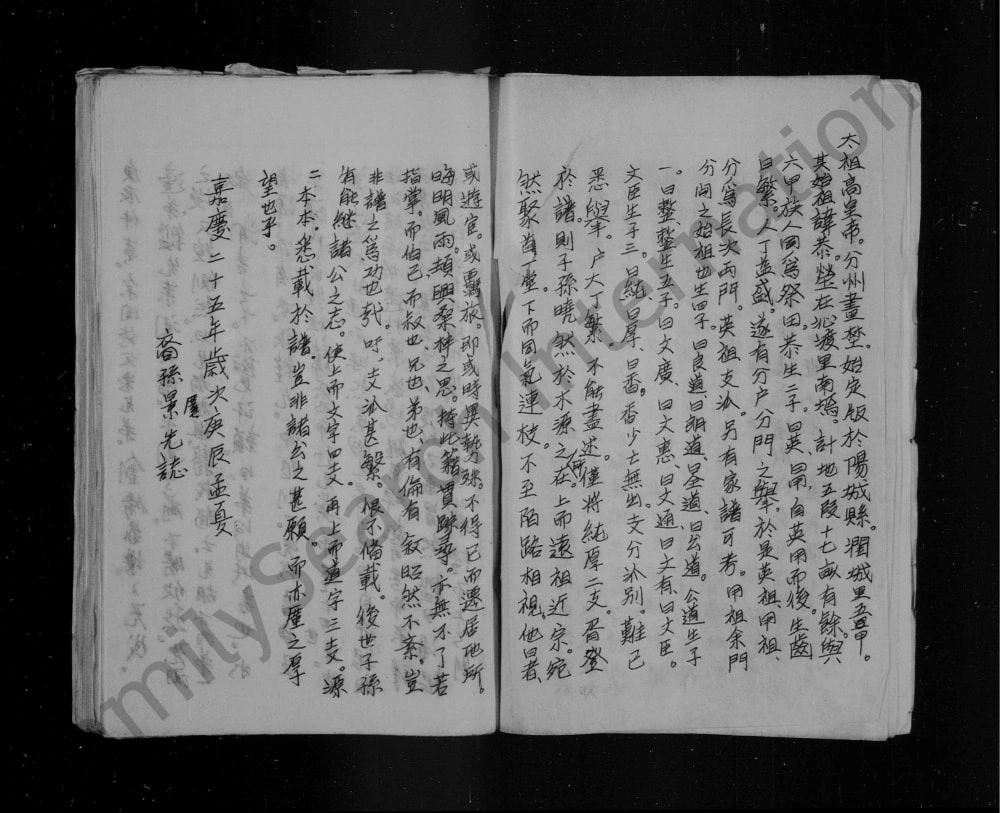 太祖高皇帝。分州畫埜。始定版於陽城縣。潤城里五甲。
其始祖諱恭。塋在沁渡里南塢。計地五段十七畝有餘。與
六甲族人同爲祭田。恭生二子。曰英、曰用。自英用而後。生齒
日繁。人丁益盛。遂有分户分門之舉。於是英祖、用祖、
分爲長次兩門。英祖支派。另有家譜可考。用祖余門
分间之始祖也生四子。曰良道、曰明道、曰全道、曰公道。公道生子
一。曰整。整生五子。曰文廣、曰文惠、曰文通、曰文有、曰文臣。
文臣生子三。曰純、曰厚、曰香。香少亡無出。支分派别。難已
悉舉。户大丁繁不能盡述。僅將純厚二支。胥登
於譜。則子孫曉然於水源之所在。上而遠祖近宗。宛
然聚首一堂。下而同氣連枝。不至陌路相視。他日者、
或遊宦。或覊旅。即或時異勢殊。不得已而遷居他所。
晦明風雨。頻興桑梓之思。持此籍貫踪尋。亦無不了若
指掌。而伯已而叔也、兄也、弟也、有倫有叙昭然不紊。豈
非譜之爲功也哉。吁。支派甚繁。恨不備載。後世子孫
有能繼諸公之志。使上而文字四支。再上而道字三支。源
二本本。悉載於譜。豈非諸公之甚願。而亦歷之厚
望也乎。
嘉慶二十五年歲次庚辰孟夏
裔孫景先誌
歷
milySearch International